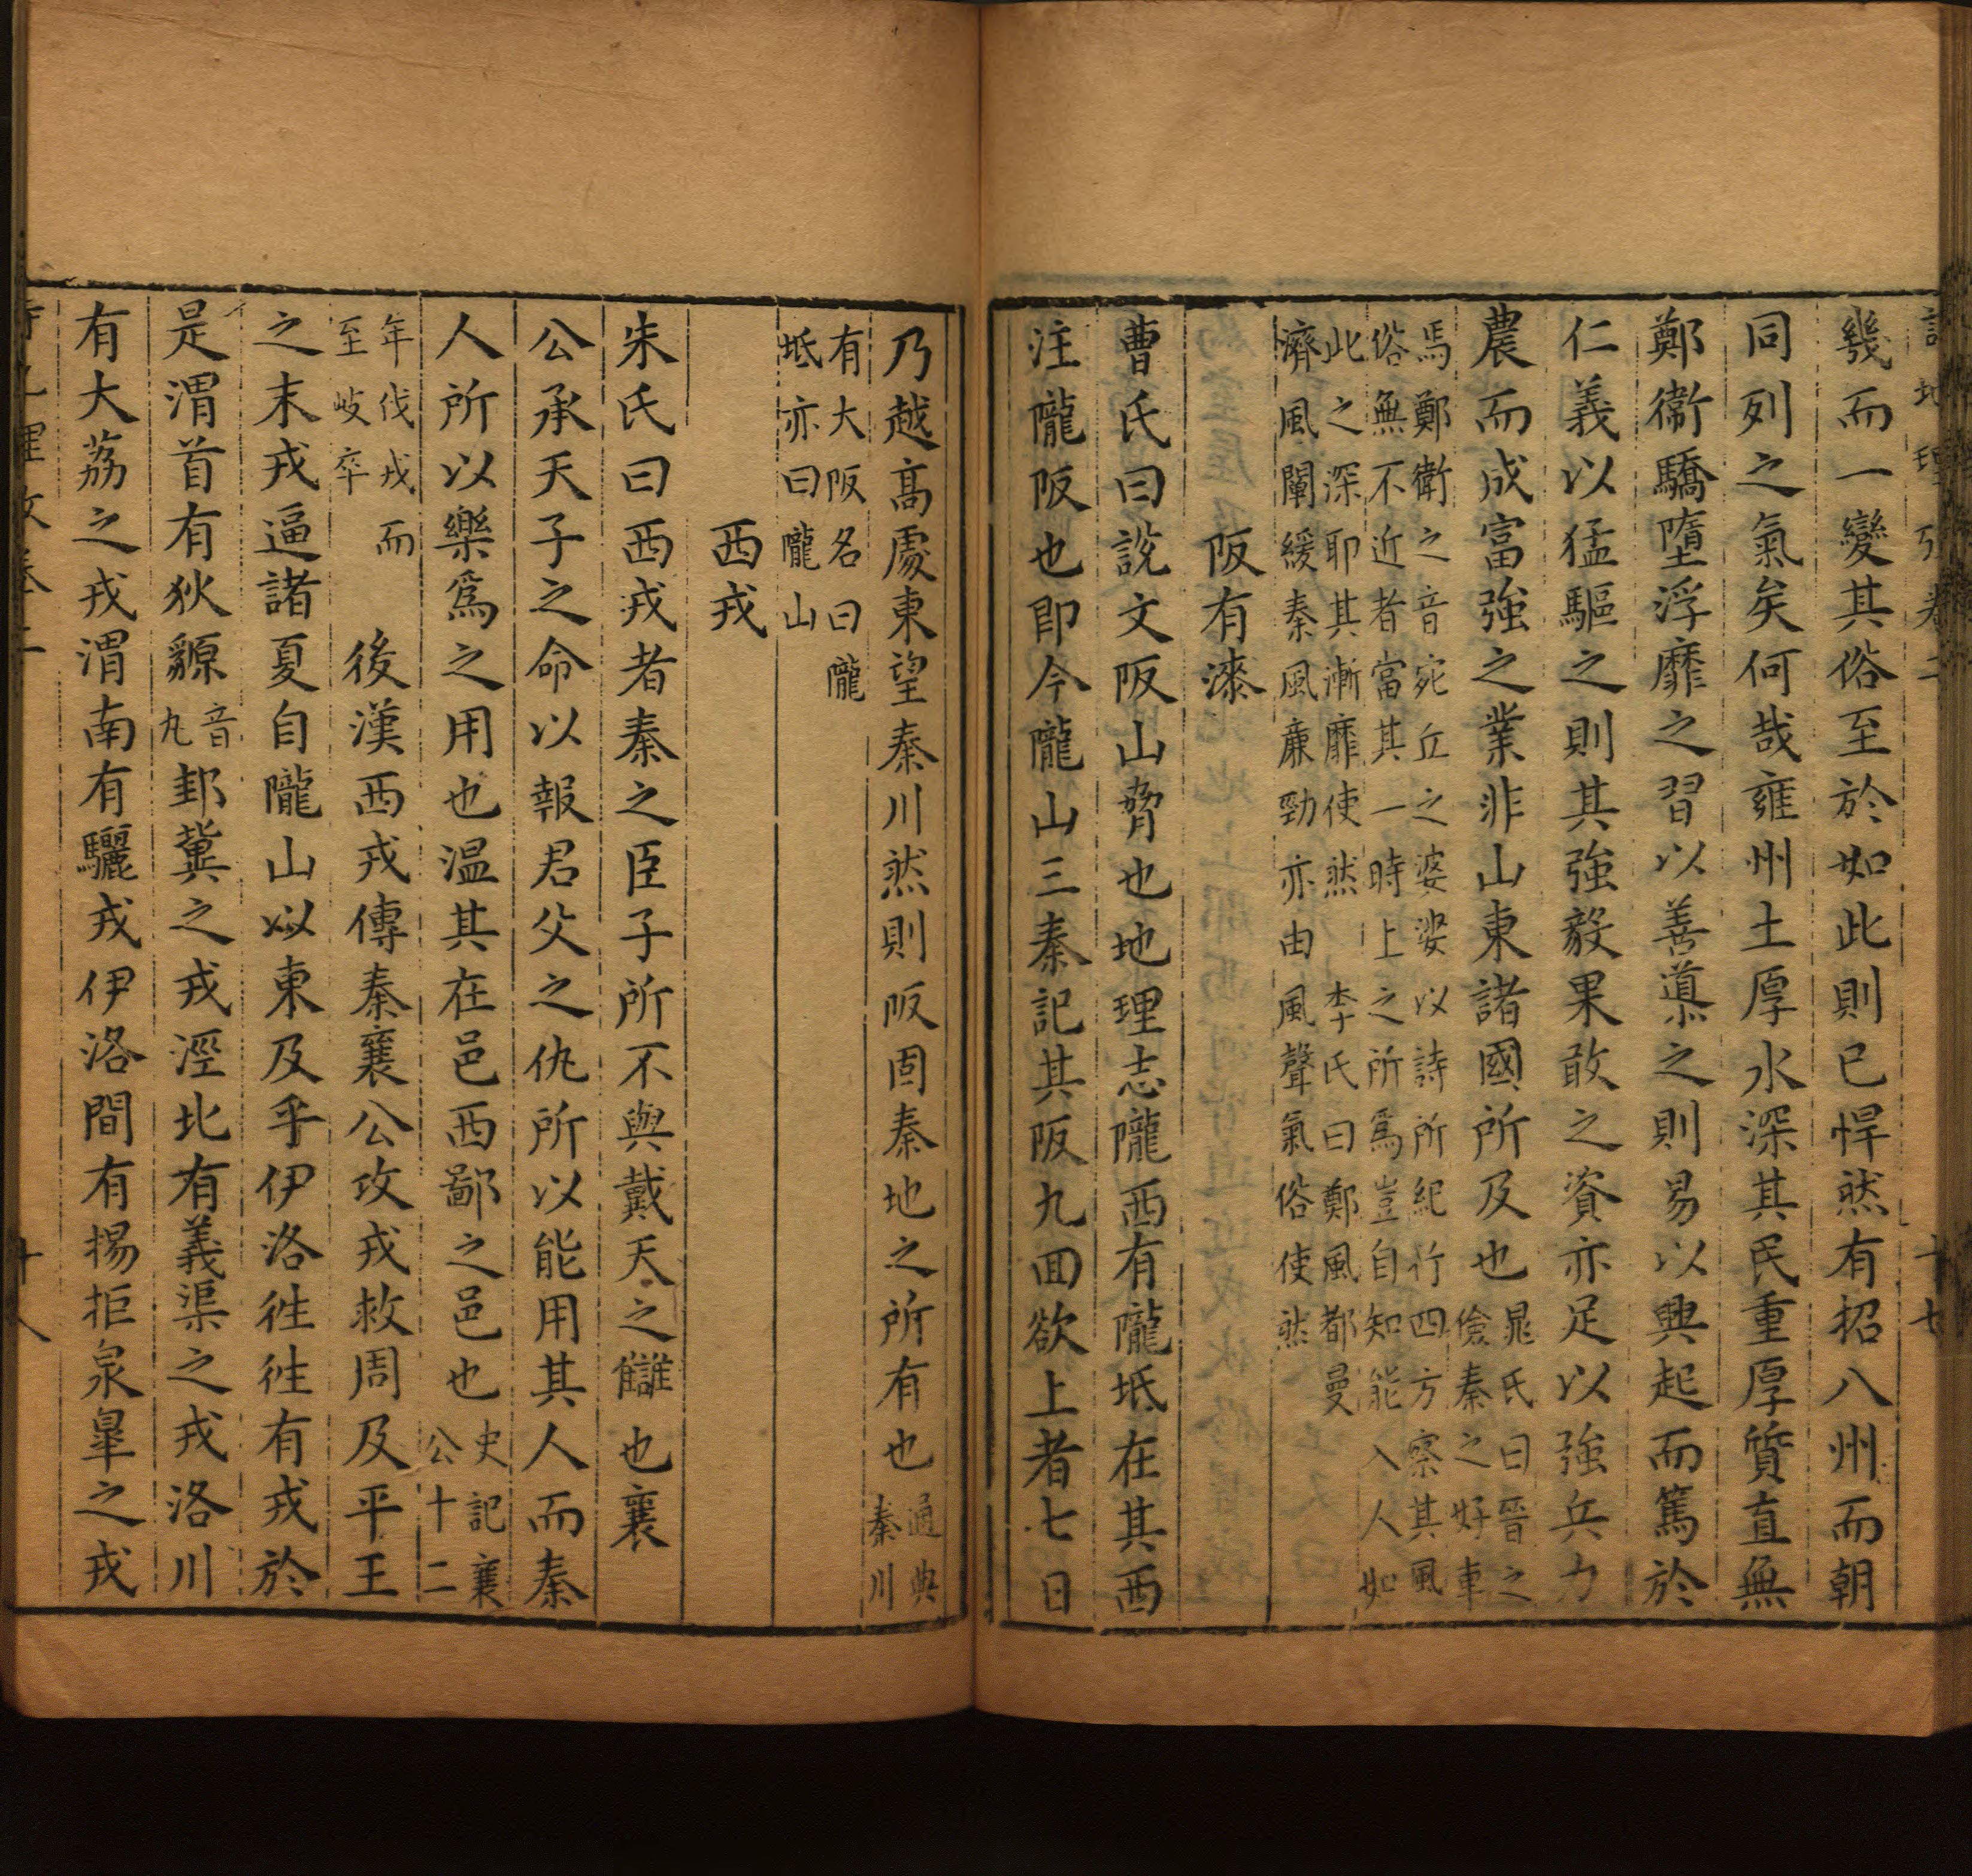 詩地理攷卷二　十七
幾而一變其俗至於如此則已悍然有招八州而朝
同列之氣矣何哉雍州土厚水深其民重厚質直無
鄭衞驕墮浮靡之習以善導之則易以興起而篤於
仁義以猛驅之則其強毅果敢之資亦足以強兵力
農而成富強之業非山東諸國所及也
晁氏曰晉之
儉秦之好車
馬鄭衛之音宛丘之婆娑以詩所紀行四方察其風
俗無不近者當其一時上之所爲豈自知能入人如
此之深耶其漸靡使然　李氏曰鄭風都曼
濟風闡緩秦風亷勁亦由風聲氣俗使然
阪有漆
曹氏曰說文阪山脅也地理志隴西有隴坻在其西
注隴阪也即今隴山三秦記其阪九回欲上者七日
乃越高處東望秦川然則阪固秦地之所有也
通典
秦川
有大阪名曰隴
坻亦曰隴山
西戎
朱氏曰西戎者秦之臣子所不與戴天之讎也襄
公承天子之命以報君父之仇所以能用其人而秦
人所以樂爲之用也温其在邑西鄙之邑也
史記襄
公十二
年伐戎而
至岐卒
後漢西戎傳秦襄公攻戎救周及平王
之末戎逼諸夏自隴山以東及乎伊洛往往有戎於
是渭首有狄䝠
音
丸
邽冀之戎涇北有義渠之戎洛川
有大荔之戎渭南有驪戎伊洛間有揚拒泉臯之戎
詩地理攷卷二　十八